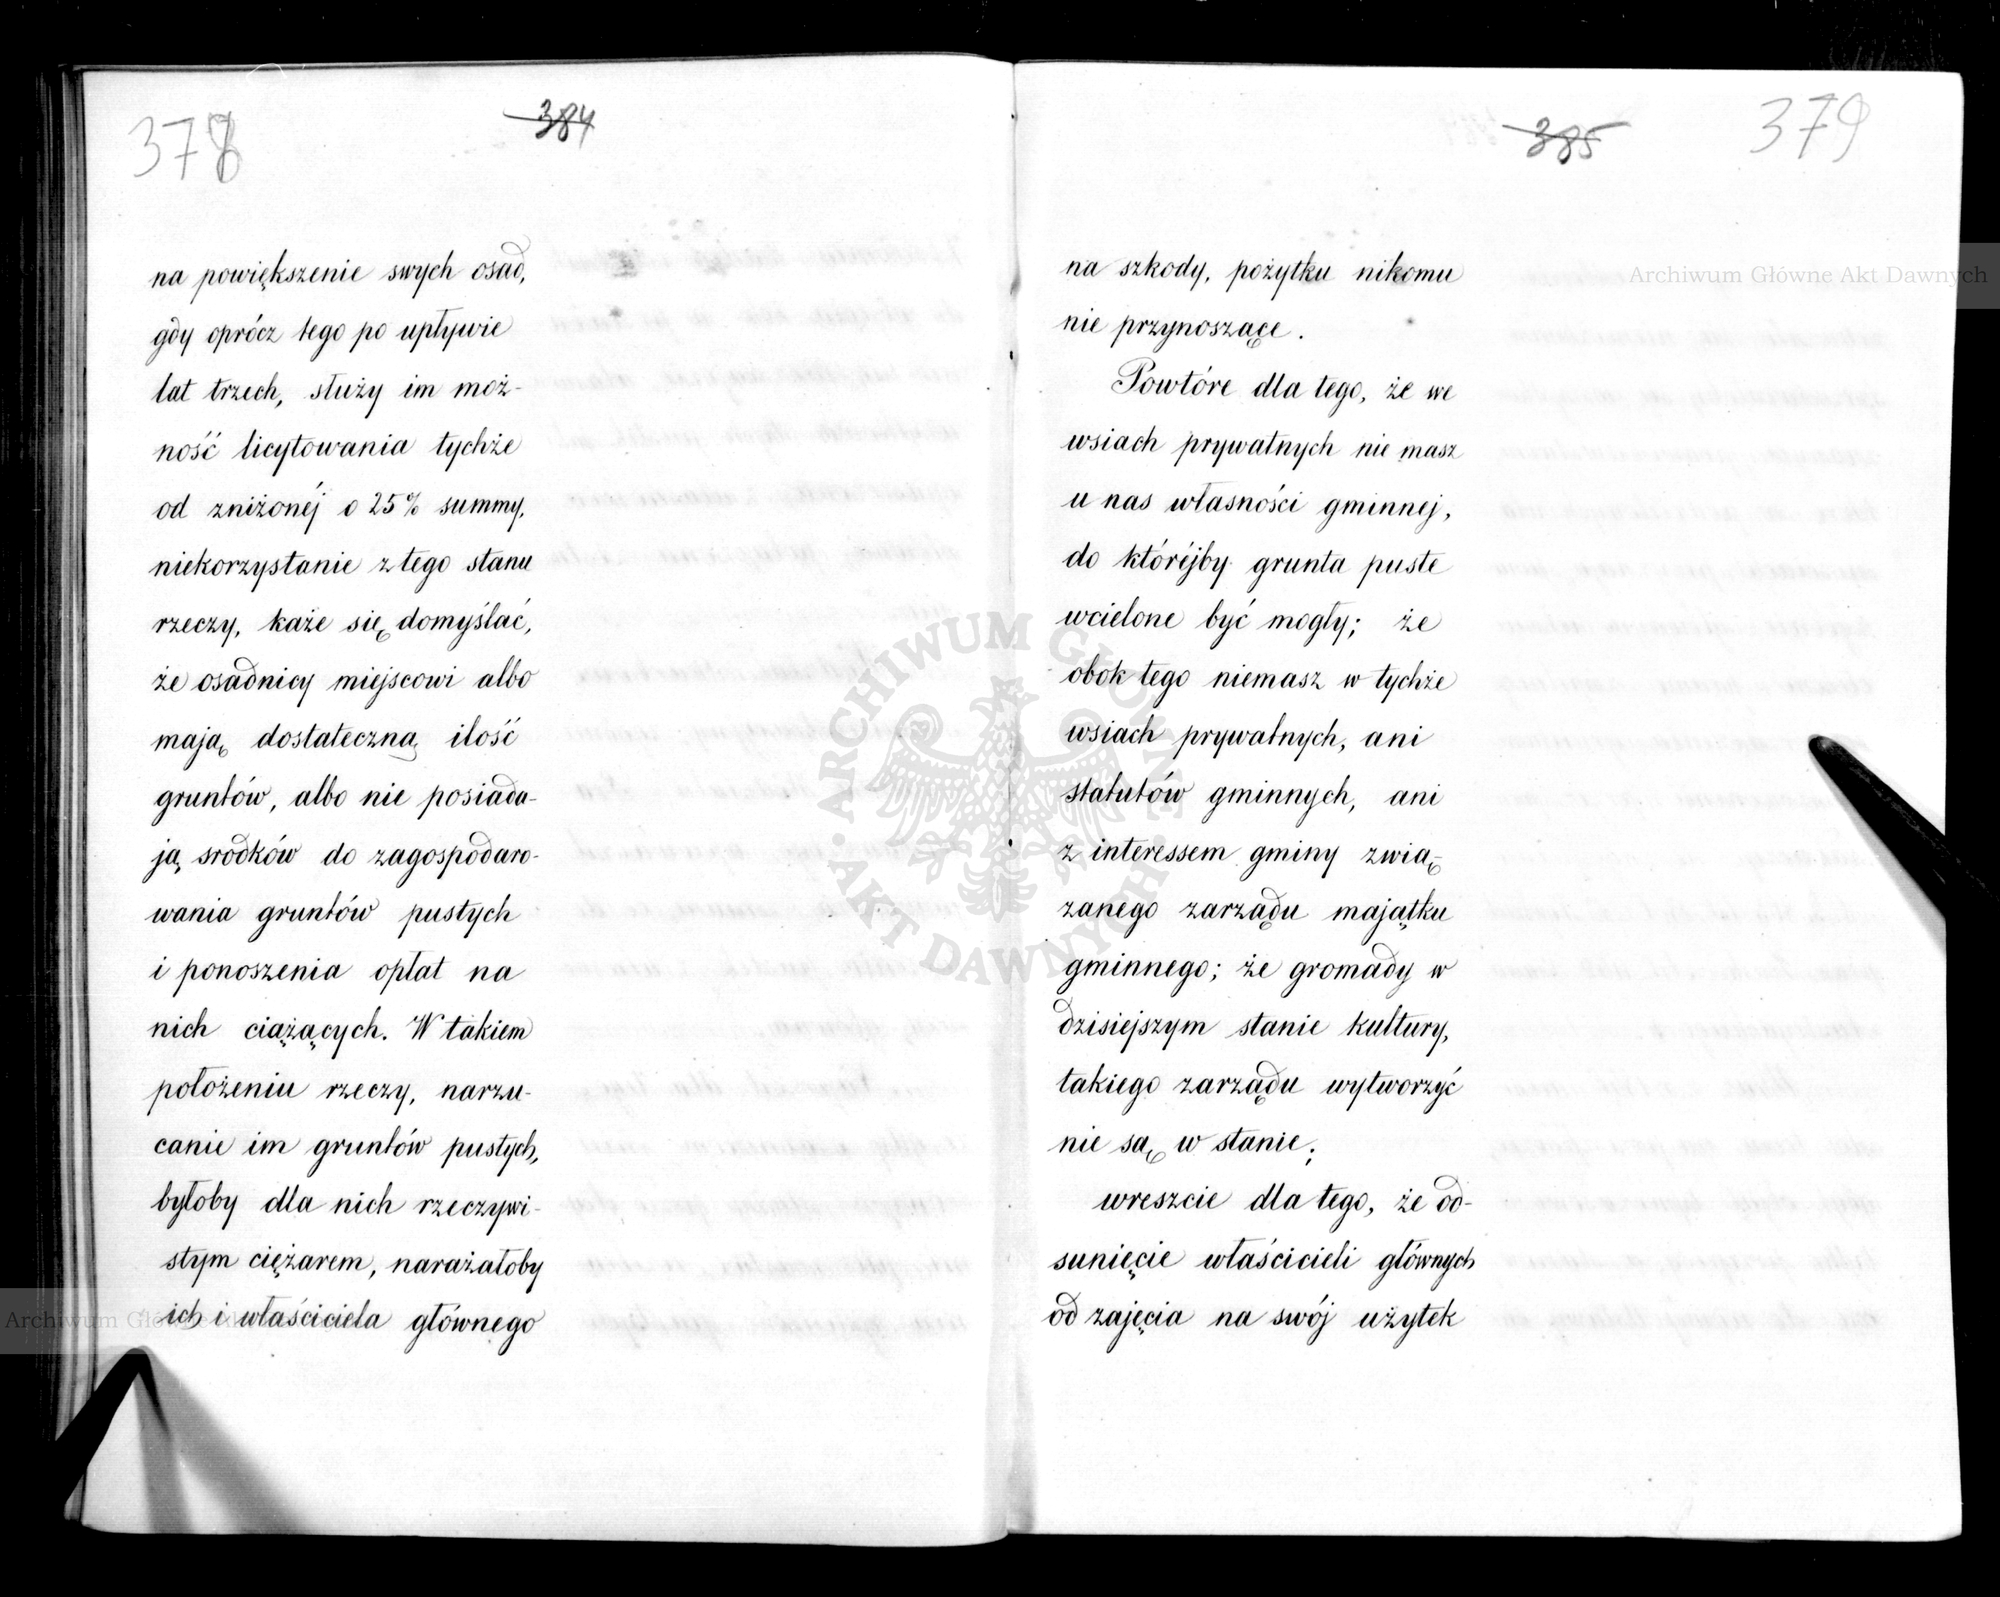 378
384
na powiększenie swych osad,
gdy oprócz tego po upływie
lat trzech, służy im moż-
ność licytowania tychże
od zniżonéj o 25% summy,
niekorzystanie z tego stanu
rzeczy, każe się domyślać,
że osadnicy miejscowi albo
mają dostateczną ilość
gruntów, albo nie posiada-
ją srodków do zagospodaro-
wania gruntów pustych
i ponoszenia opłat na
nich ciążących. W takiem
położeniu rzeczy, narzu-
canie im gruntów pustych,
byłoby dla nich rzeczywi-
stym ciężarem, narażałoby
ich i właściciela głównego
385
379
na szkody, pożytku nikomu
nie przynoszące.
Powtóre dla tego, że we
wsiach prywatnych nie masz
u nas własności gminnej,
do któréjby grunta puste
wcielone być mogły; że
obok tego niemasz w tychże
wsiach prywatnych, ani
statutów gminnych, ani
z interessem gminy zwią-
zanego zarządu majątku
gminnego; że gromady w
dzisiejszym stanie kultury,
takiego zarządu wytworzyć
nie są w stanie;
wreszcie dla tego, że od-
sunięcie właścicieli głównych
od zajęcia na swój użytek
Archiwum Główne Akt Dawnych
ARCHIWUM GŁÓWNE
AKT DAWNYCH